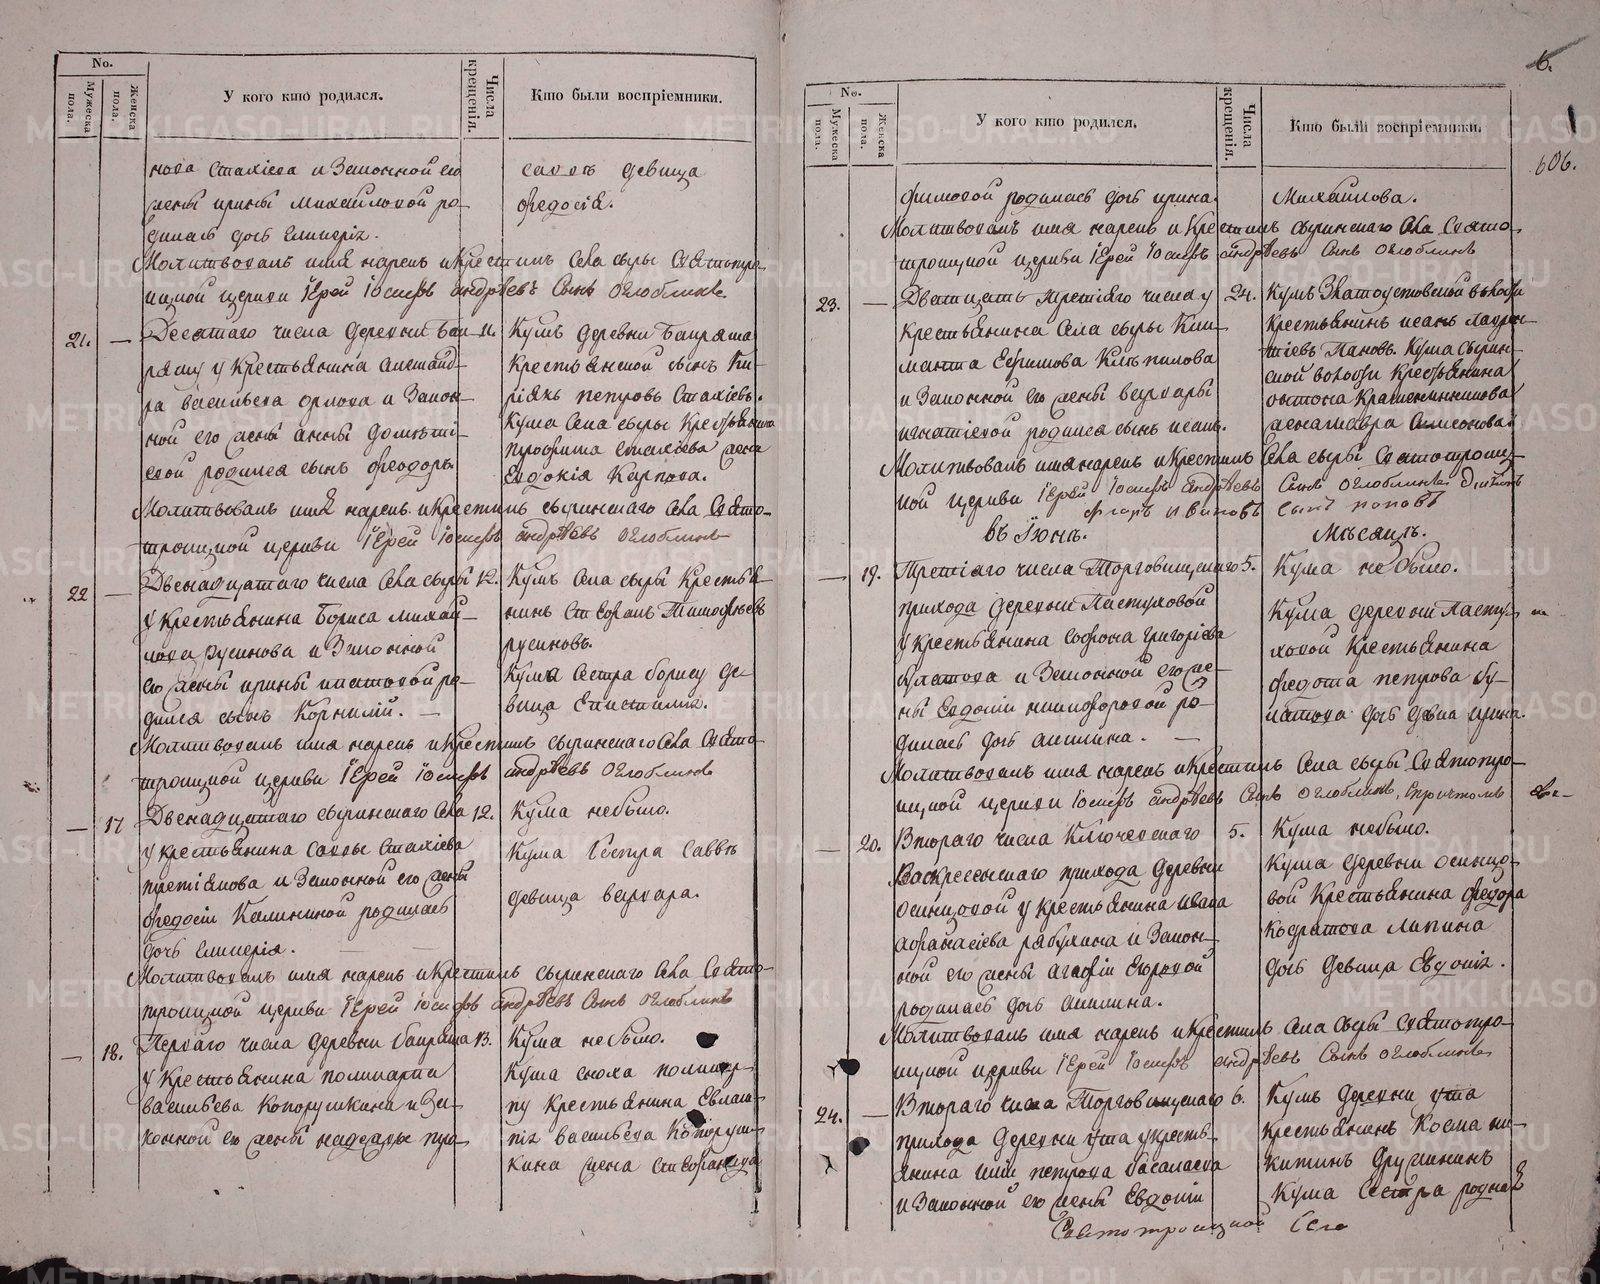 No.
Мужеска пола.
Женска пола.
У кого кто родился.
Числа крещенія.
Кто были воспріемники.
нова Стахіева и Законной его
жены ирины михайловой ро-
дилась дочь гликерія.
савѣ девица
федосія.
Молитвовалъ имя нарекъ и крестилъ Села сыры Святотро-
ицкой церкви Іерей Іосифъ андрѣевъ Сынъ Оглоблинъ
21. —
Десятаго числа деревни Баи-
ряшу у Крестьянина александ-
ра васильева орлова и Закон-
ной его жены анны
родился сынъ феодоръ.
11.
Кумъ деревни Баиряша
Крестьянской сынъ Ки-
ріякъ петровъ Стахіевъ.
Кума Села сыры Крестьянина
трофима Стахіева жена
Евдокія Карпова.
Молитвовалъ имя нарекъ и крестилъ сыринскаго Села Свято-
троицкой церкви Іерей Іосифъ андрѣевъ Оглоблинъ
22 —
Двенадцатаго числа Села сыры
у крестьянина Бориса михай-
лова Русинова и Законной
его жены ирины игнатовой ро-
дился сынъ Корнилій. —
12.
Кумъ Села сыры Крестья-
нинъ Стефанъ Тимофѣевъ
русиновъ.
Кума Сестра борису де-
вица Епистимія.
Молитвовалъ имя нарекъ и крестилъ сыринскаго Села Свято-
троицкой церкви Іерей Іосифъ андрѣевъ Оглоблинъ
— 17
Двенадцатаго сыринскаго Села
у крестьянина саввы Стахіева
и Законной его жены
федосіи Калининой родилась
дочь гликерія. —
12.
Кума небыло.
Кума Сестра Саввѣ
девица варвара.
Молитвовалъ имя нарекъ и крестилъ сыринскаго Села Свято-
троицкой церкви Іерей Іосифъ андрѣевъ Сынъ Оглоблинъ
— 18.
Перваго числа деревни баиряша
у Крестьянина поликарпа
васильева Копорушкина и За-
конной его жены надежды тро-
13.
Кума не было.
Кума сноха поликар-
пу Крестьянина Евлам-
пія васильева Копоруш-
кина жена Стефанида
6.
606.
No.
Мужеска пола.
Женска пола.
У кого кто родился.
Числа крещенія.
Кто были воспріемники.
фимовой родилась дочь ирина.
Михайлова.
Молитвовалъ имя нарекъ и крестилъ сыринскаго Села Свято-
троицкой церкви Іерей Іосифъ андрѣевъ Сынъ Оглоблинъ
23. —
Дватцать третіяго числа у
Крестьянина Села сыры Кли-
мента Ефимова
и Законной его жены варвары
игнатіевой родился сынъ исакъ.
24.
Кумъ Златоустовской волости
Крестьянинъ исакъ лаврен-
тіевъ Пановъ. Кума сырин-
ской волости Крестьянина
антона Крашенинникова
жена
Молитвовалъ имя нарекъ и крестилъ Села сыры Святотроиц-
кой церкви Іерей Іосифъ андрѣевъ Сынъ Оглоблинъ дьячекъ
Ивановъ сынъ поповъ
въ Іюнѣ. Мѣсяцѣ.
— 19.
Третіяго числа Торговищскаго
прихода деревни Пастуховой
у Крестьянина Софрона григоріева
булатова и Законной его же-
ны Евдокіи никифоровой ро-
дилась дочь акилина. —
5.
Кума не было.
Кума деревни Пасту-
ховой Крестьянина
федота петрова бу-
латова дочь девка ирина.
Молитвовалъ имя нарекъ и крестилъ Села сыры Святотро-
ицкой церкви Іосифъ андрѣевъ Сынъ Оглоблинъ, съ причтомъ
— 20.
Втораго числа Ключевскаго
Воскресенскаго прихода деревни
осинцовой у крестьянина ивана
афанасіева рябухина и Закон-
ной его жены агафіи Егоровой
родилась дочь акилина.
5.
Кума небыло.
Кума деревни осинцо-
вой Крестьянина федора
Кодратова липина
дочь девица Евдокія.
Молитвовалъ имя нарекъ и крестилъ Села сыры Святотро-
ицкой церкви Іерей Іосифъ андрѣевъ Сынъ Оглоблинъ
24. —
Втораго числа Торговищскаго
прихода деревни утя у кресть-
янина петрова басалаева
и Законной его жены Евдокіи
6.
Кумъ деревни утя
крестьянинъ Косма ни-
китинъ дружининъ
Кума Сестра родная
Святотроицкой Села